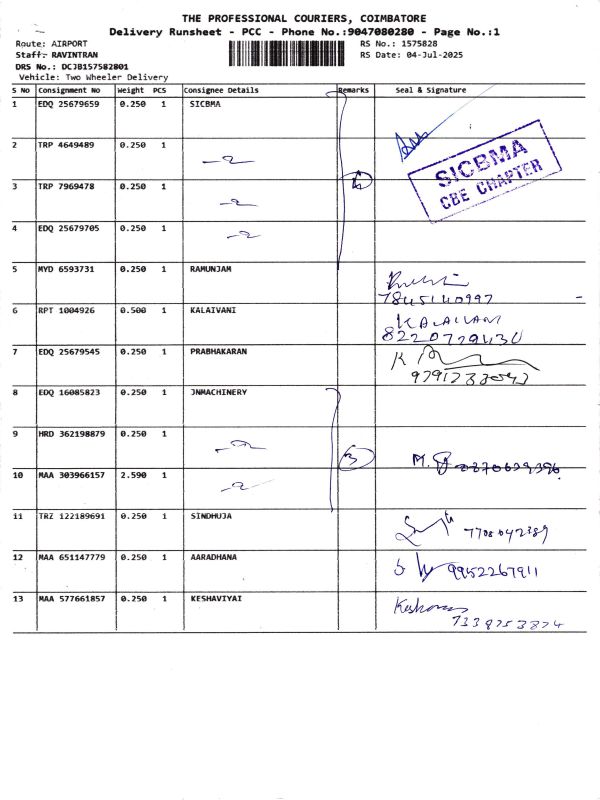 THE PROFESSIONAL COURIERS, COIMBATORE
Delivery Runsheet - PCC - Phone No.:9047080280 - Page No.:1
Route: AIRPORT RS No.: 1575828
Staff: RAVINTRAN RS Date: 04-Jul-2025
DRS No.: DCJB157582801
Vehicle: Two Wheeler Delivery
S No Consignment No Weight PCS Consignee Details Remarks Seal & Signature
1 EDQ 25679659 0.250 1 SICBMA
2 TRP 4649489 0.250 1
SICBMA
CBE CHAPTER
3 TRP 7969478 0.250 1
4 EDQ 25679705 0.250 1
5 MYD 6593731 0.250 1 RAMUNJAM
7845140997
6 RPT 1004926 0.500 1 KALAIVANI KALAIVANI
8220729430
7 EDQ 25679545 0.250 1 PRABHAKARAN
9791233043
8 EDQ 16085823 0.250 1 JNMACHINERY
9 HRD 362198879 0.250 1
3 M.
10 MAA 303966157 2.590 1
11 TRZ 122189691 0.250 1 SINDHUJA
7708042389
12 MAA 651147779 0.250 1 AARADHANA 9952267911
13 MAA 577661857 0.250 1 KESHAVIYAI
7339753874